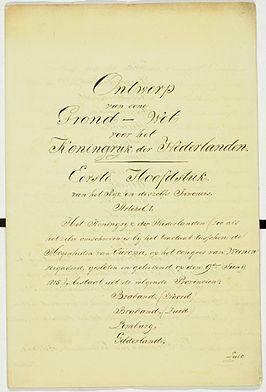 Ontwerp
van eene
Grond – Wet
voor het
Koningryk der Nederlanden.
Eerste Hoofdstuk.
van het Ryk en deszelfs Inwoners.
Artikel 1.
Het Koningryk der Nederlanden, zoo als
het zelve omschreven is by het tractaat tusschen de
Mogendheden van Europa, op het congres van Weenen
vergaderd, gesloten en geteekend op den 9den Juny
1815, bestaat uit de volgende Provincien:
Braband, (Noord)
Braband, (Zuid)
Limburg,
Gelderland,
Luik